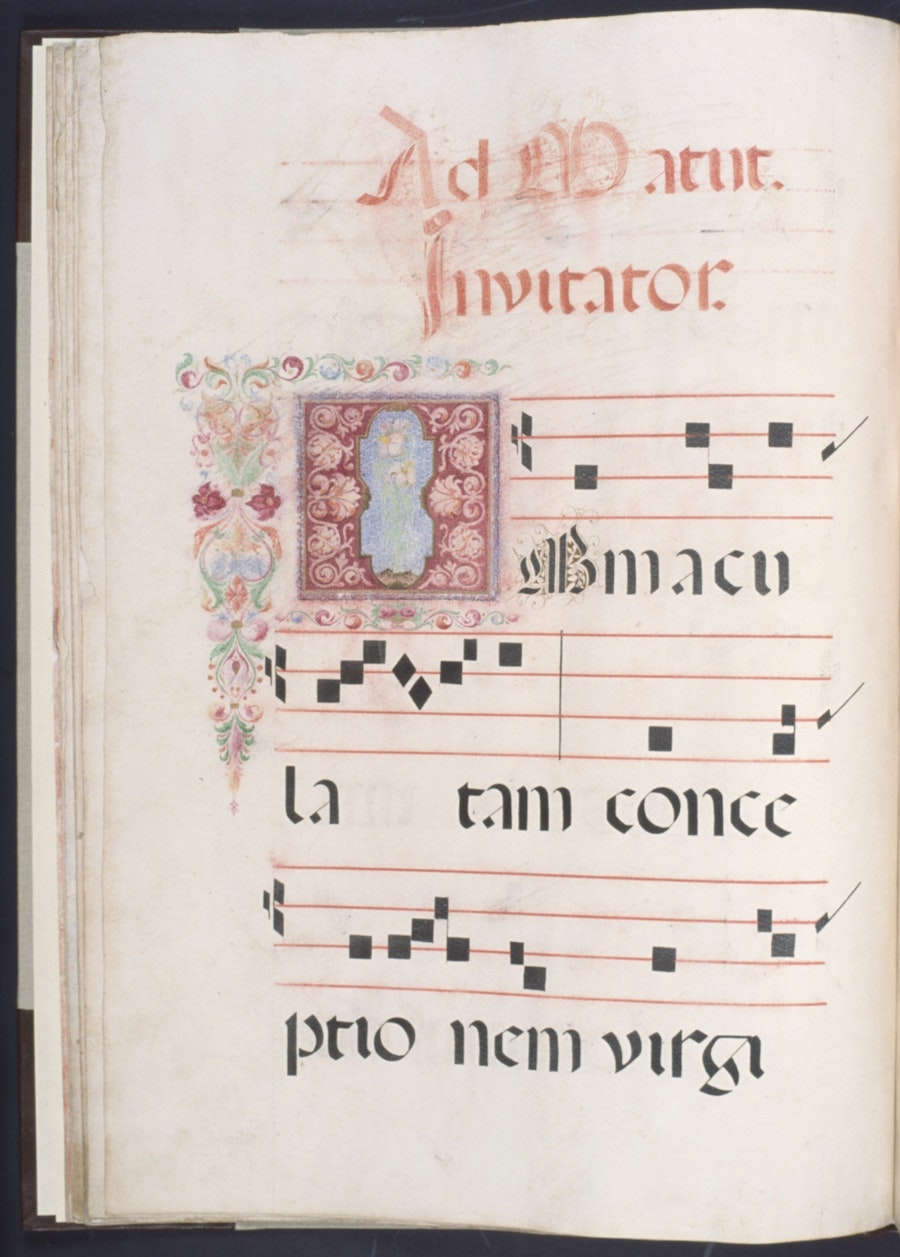 Ad Matut.
Invitator.
Immacu
la tam conce
ptio nem virgi